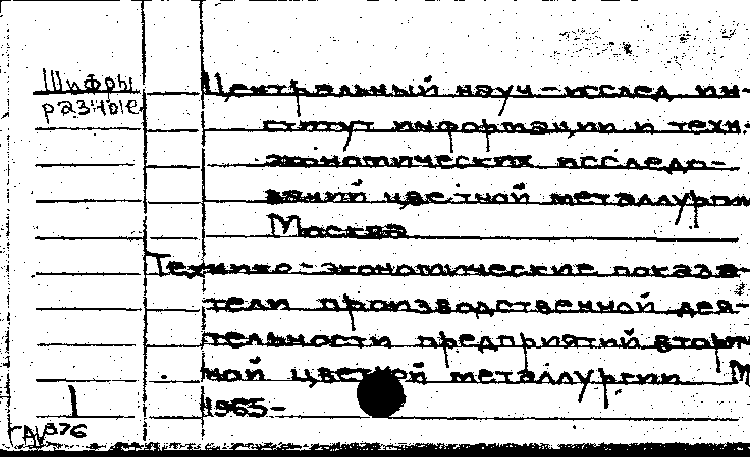 Шифры
разные
Центральный науч-исслед ин-
ститут информации и техн-
экономических исследо-
ваний цветной металлургии
Москва
Технико-экономические показа-
тели производственной дея-
тельности предприятий вторич
ной цветной металлургии М
1965-
1